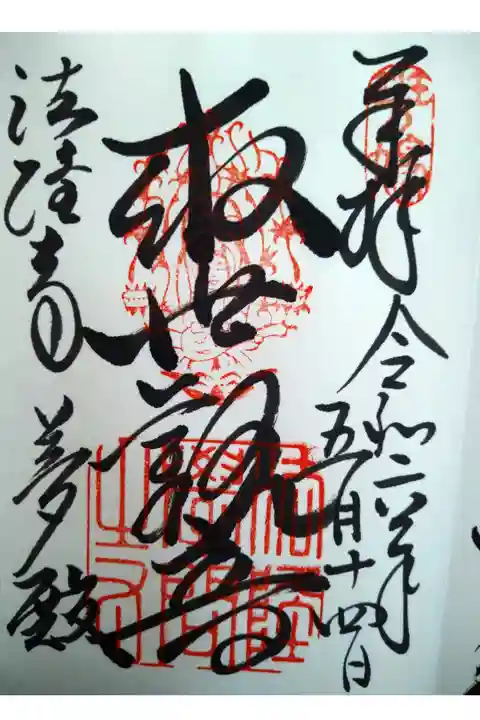 奉拝
令和二年
五月十四日
救世観音
法隆寺 夢殿